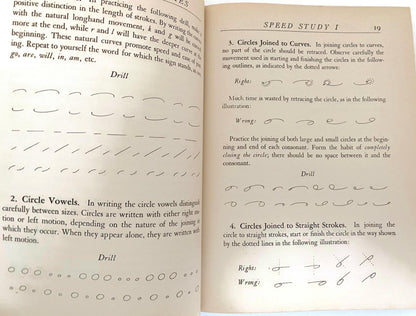 In practicing the following drill, make a
positive distinction in the length of strokes. By writing them
with the natural longhand movement, k and g will be curved
more at the end, while r and l will have the deeper curve at the
beginning. These natural curves promote speed and ease of
Repeat to yourself the word for which the sign stands, as in
go, are, will, in, am, etc.
Drill
2. Circle Vowels. In writing the circle vowels distinguish
carefully between sizes. Circles are written with either right
tion or left motion, depending on the nature of the joining in
which they occur. When they appear alone, they are written with
left motion.
Drill
SPEED STUDY I
19
3. Circles Joined to Curves. In joining circles to curves,
no part of the circle should be retraced. Observe carefully the
movement used in starting and finishing the circles in the follow-
ing outlines, as indicated by the dotted arrows:
Right:
Much time is wasted by retracing the circle, as in the following
illustration:
Wrong:
Practice the joining of both large and small circles at the begin-
ning and end of each consonant. Form the habit of completely
closing the circle; there should be no space between it and the
consonant.
Drill
4. Circles Joined to Straight Strokes. In joining the
circle to straight strokes, start or finish the circle in the way shown
by the dotted lines in the following illustration:
Right:
Wrong: